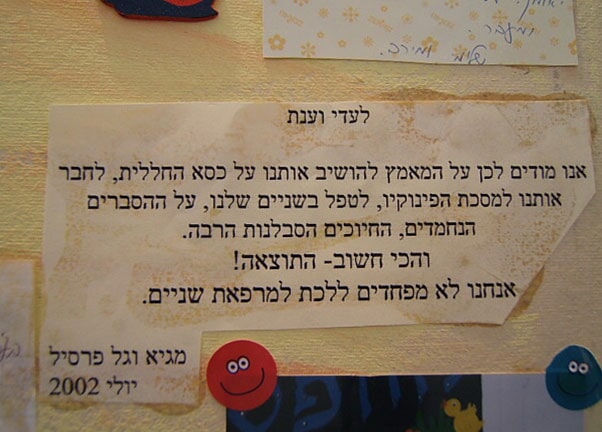 ומיטב.
שלים ומירב.
לעדי וענת
אנו מודים לכן על המאמץ להושיב אותנו על כסא החללית, לחבר
אותנו למסכת הפינוקיו, לטפל בשניים שלנו, על ההסברים
הנחמדים, החיוכים הסבלנות הרבה.
והכי חשוב- התוצאה!
אנחנו לא מפחדים ללכת למרפאת שניים.
מגיא וגל פרסיל
יולי 2002